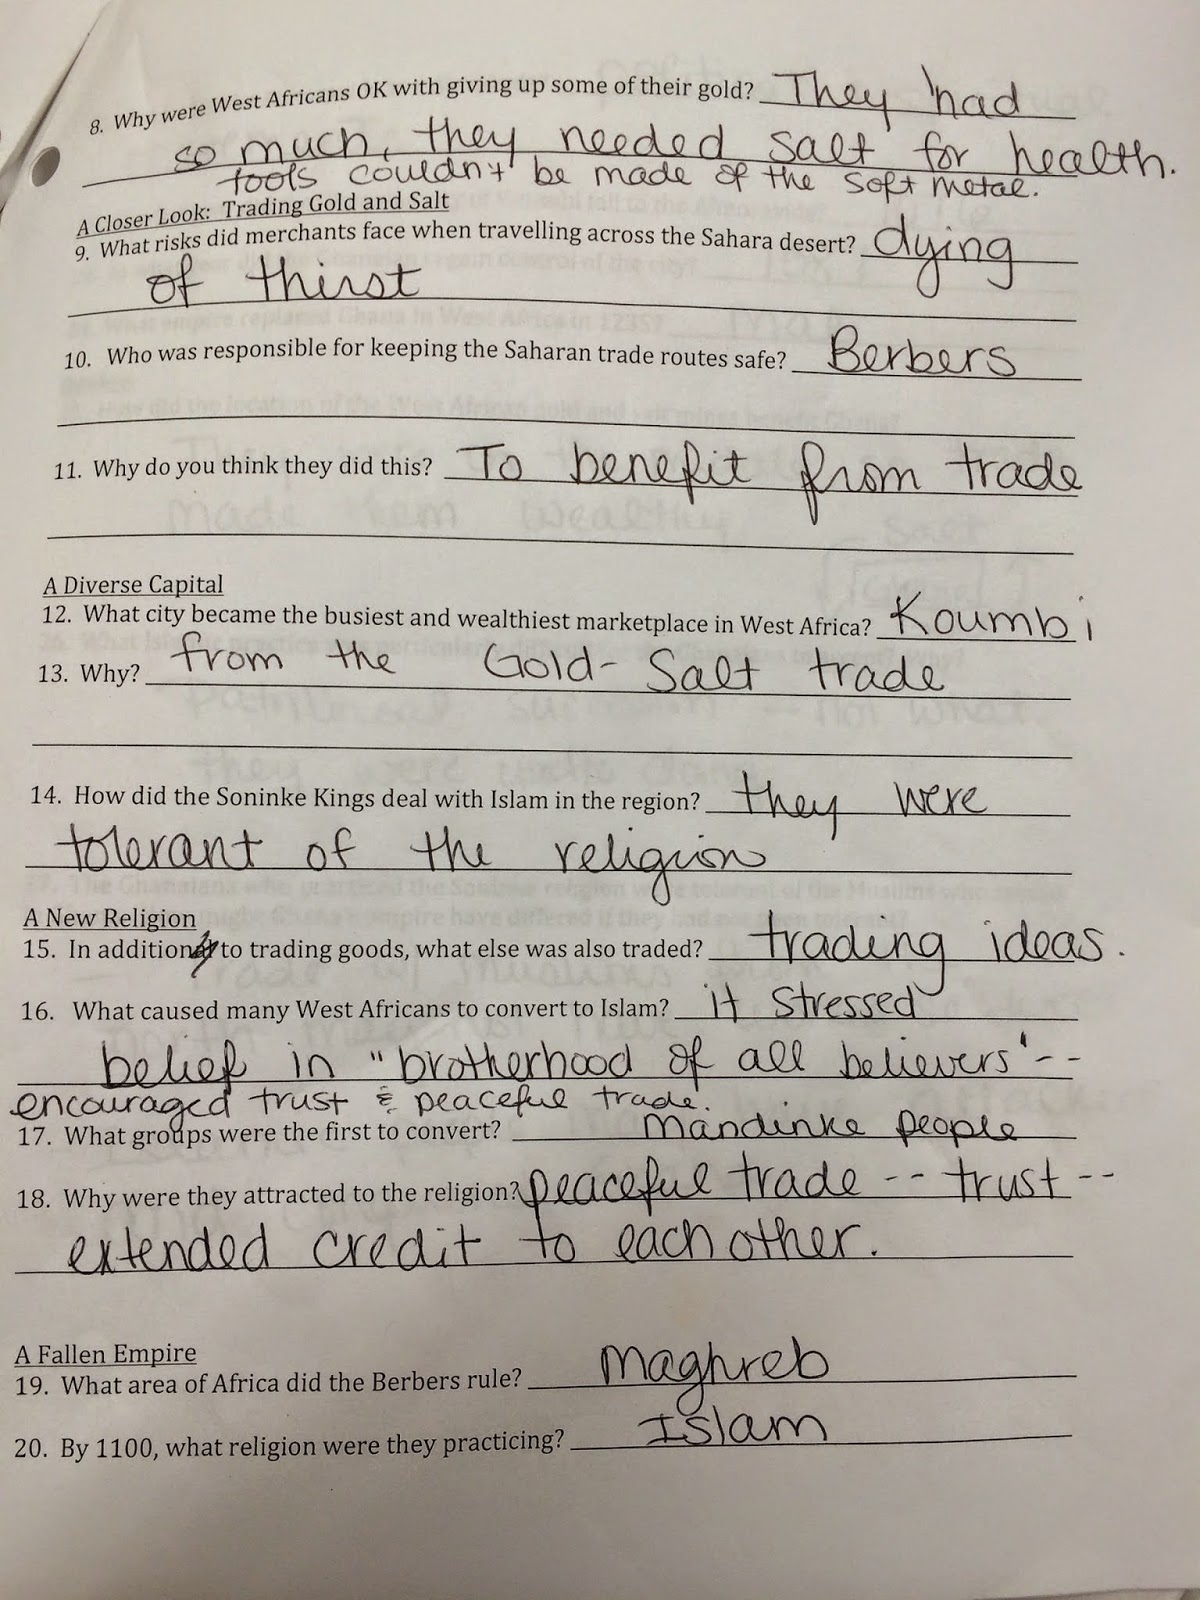 8. Why were West Africans OK with giving up some of their gold? They had
so much, they needed salt for health.
tools couldn't be made of the soft metal.
A Closer Look: Trading Gold and Salt
9. What risks did merchants face when travelling across the Sahara desert? dying
of thirst
10. Who was responsible for keeping the Saharan trade routes safe? Berbers
11. Why do you think they did this? To benefit from trade
A Diverse Capital
12. What city became the busiest and wealthiest marketplace in West Africa? Koumbi
13. Why? from the Gold-Salt trade
14. How did the Soninke Kings deal with Islam in the region? they were
tolerant of the religion
A New Religion
15. In addition to trading goods, what else was also traded? trading ideas.
16. What caused many West Africans to convert to Islam? it stressed
belief in "brotherhood of all believers'--
encouraged trust & peaceful trade.
17. What groups were the first to convert? Mandinke people
18. Why were they attracted to the religion? peaceful trade -- trust --
extended credit to each other.
A Fallen Empire
19. What area of Africa did the Berbers rule? Maghreb
20. By 1100, what religion were they practicing? Islam